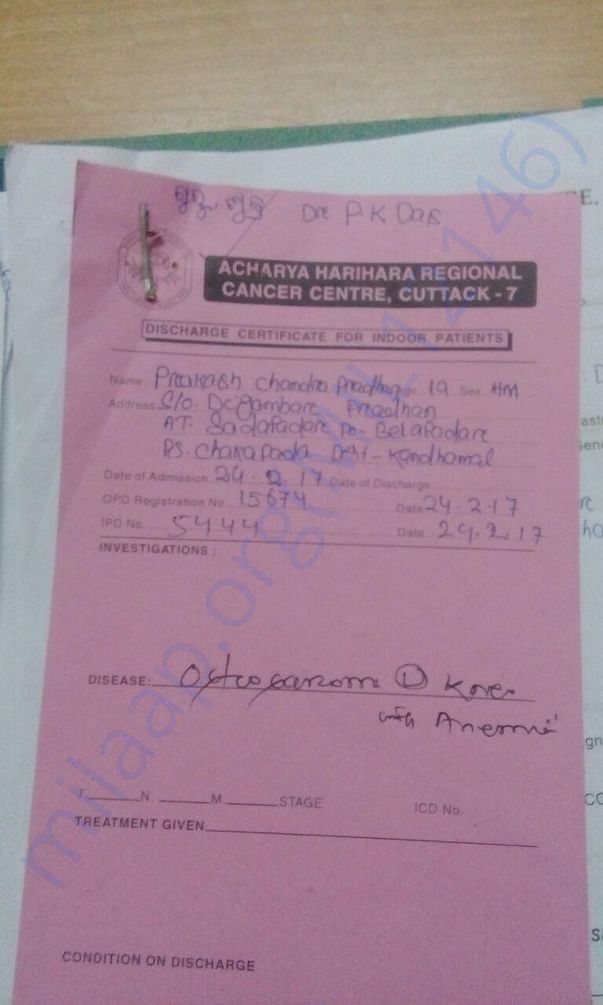 Dr P.K Das
ACHARYA HARIHARA REGIONAL
CANCER CENTRE, CUTTACK - 7
DISCHARGE CERTIFICATE FOR INDOOR PATIENTS
Name: Prakash Chandra Pradhan 19 Sex HM
Address: S/O. Degambar Pradhan
AT. Sadapadar Po. Belapadar
P.S. Chakapada Dist - Kandhamal
Date of Admission 24.2.17 Date of Discharge
OPD Registration No. 15674 Date 24.2.17
IPD No. 5444 Date 24.2.17
INVESTIGATIONS :
DISEASE: Osteosarcoma Knee
with Anemia
T N M STAGE ICD No.
TREATMENT GIVEN
CONDITION ON DISCHARGE
milaap.org